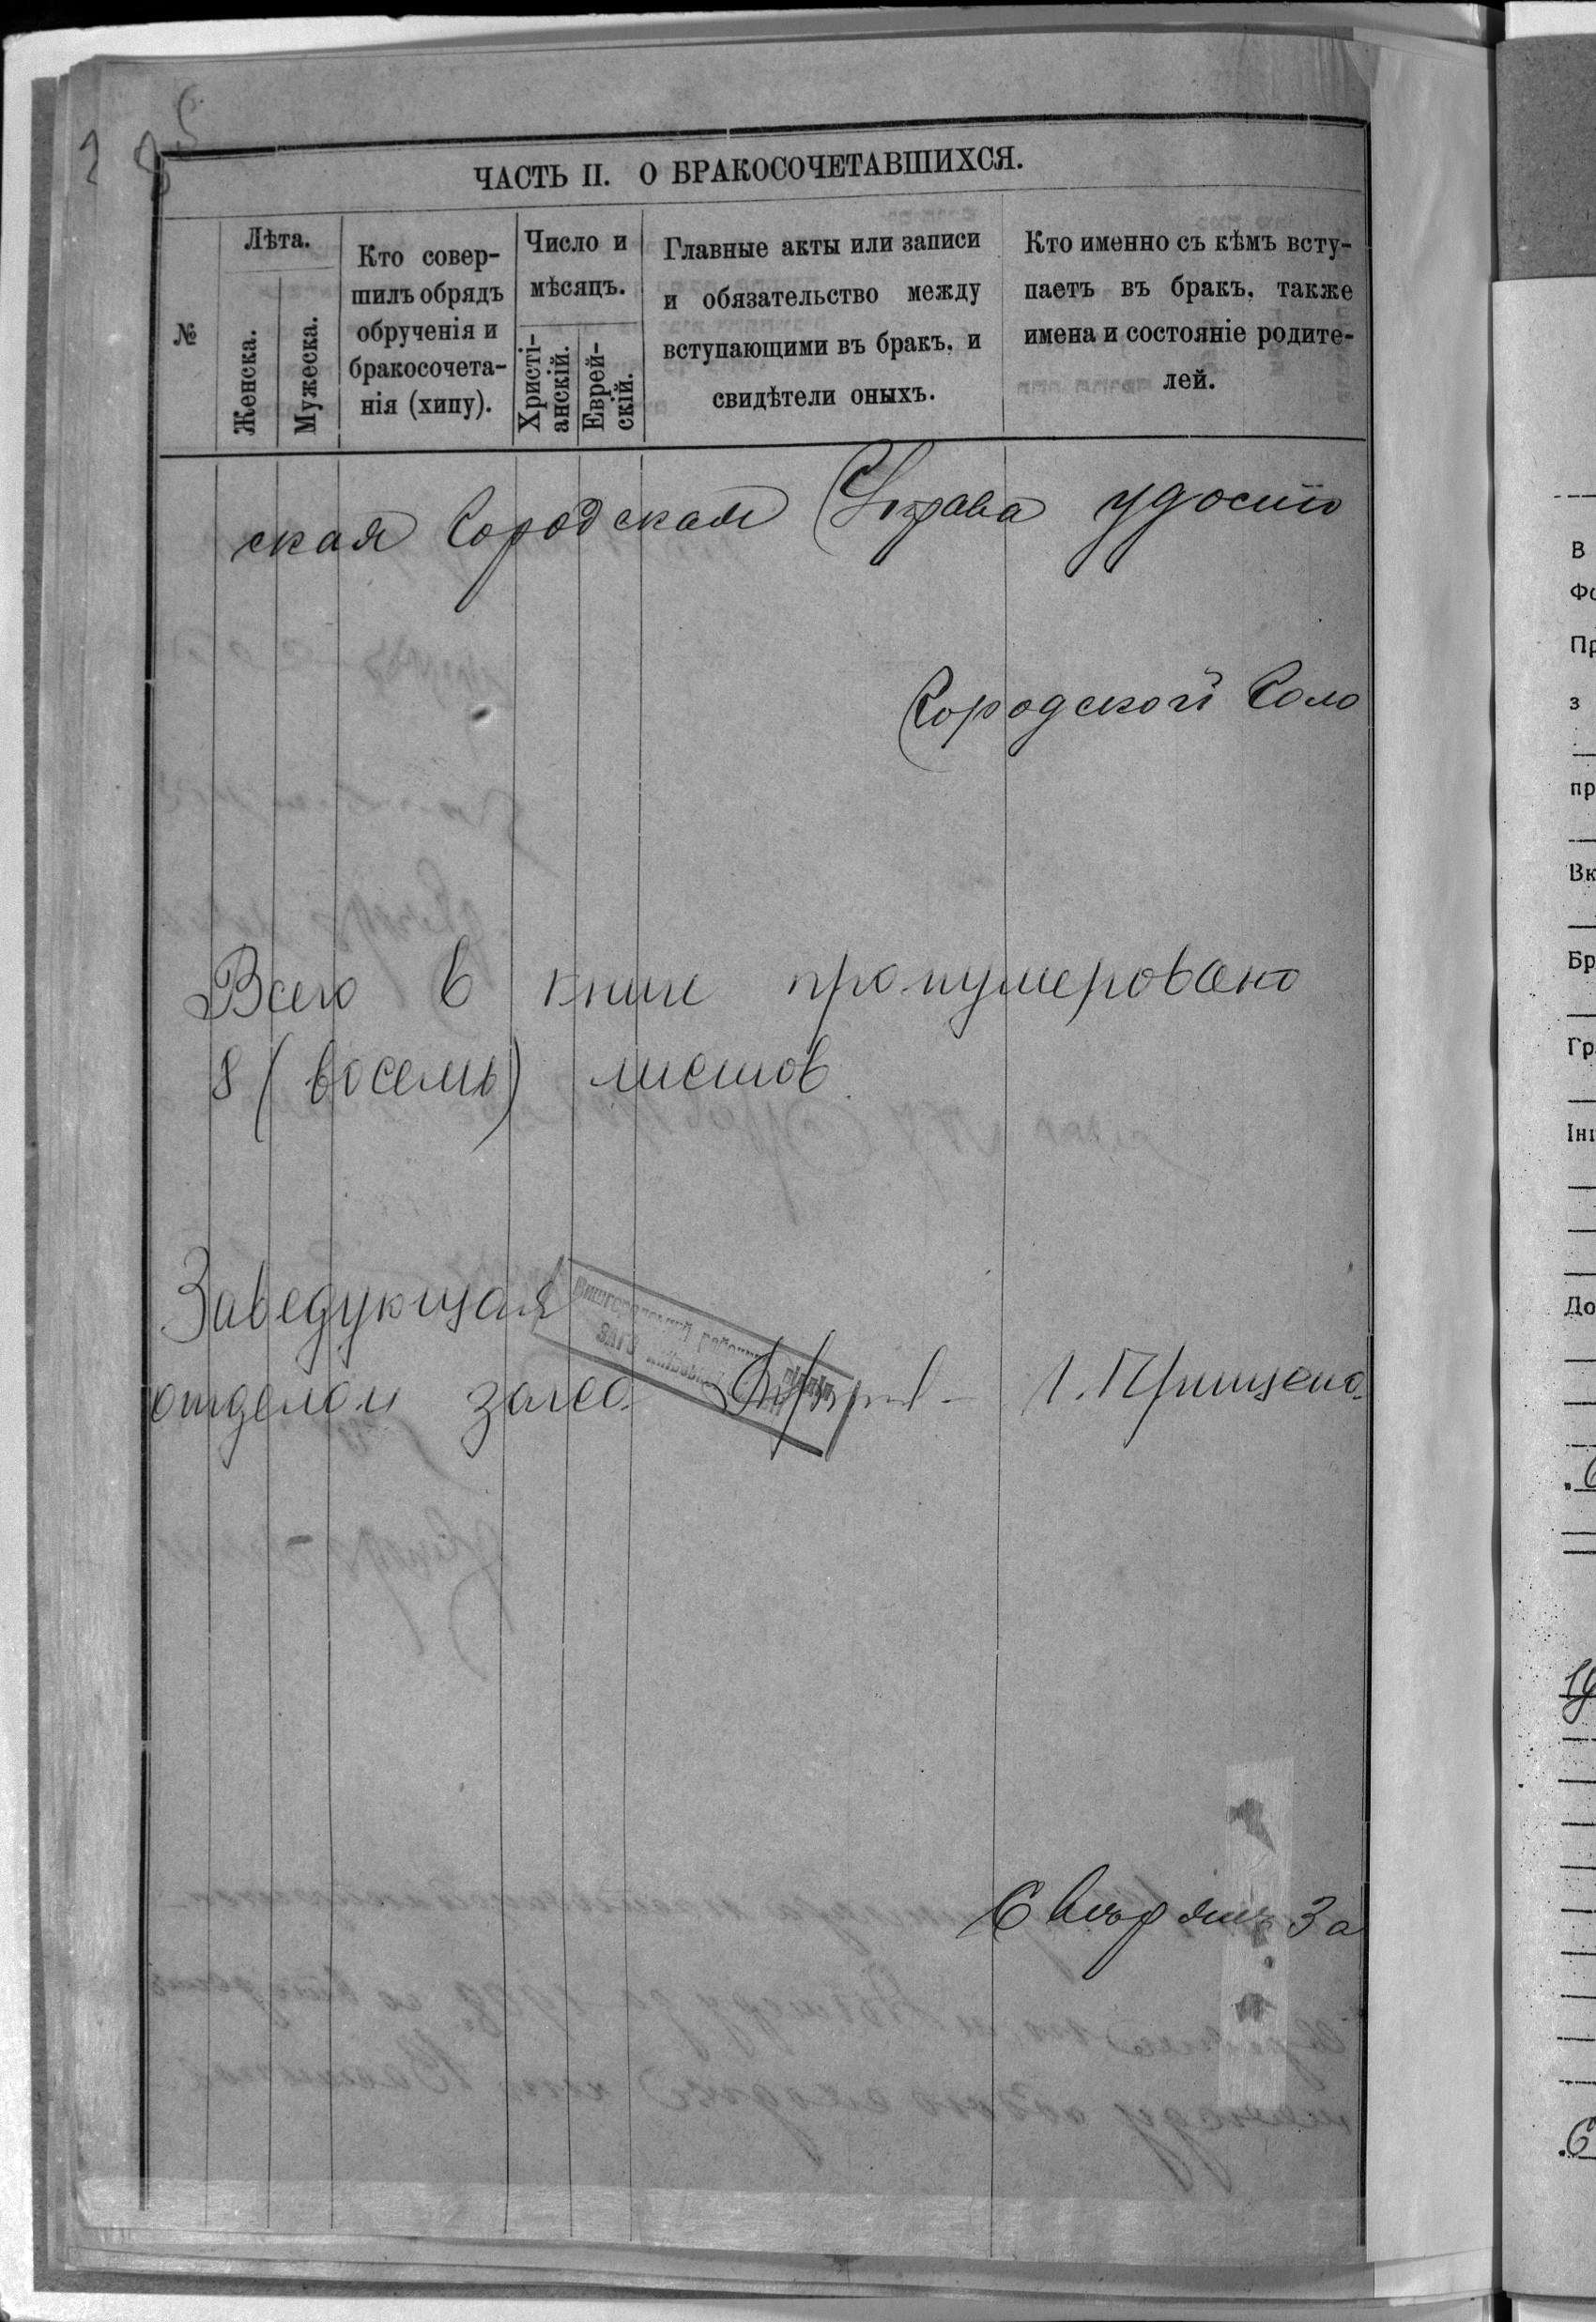 8
ЧАСТЬ II. О БРАКОСОЧЕТАВШИХСЯ.
№
Лѣта.
Женска.
Мужеска.
Кто совер-
шилъ обрядъ
обрученія и
бракосочета-
нія (хипу).
Число и
мѣсяцъ.
Христі-
анскій.
Еврей-
скій.
Главные акты или записи
и обязательство между
вступающими въ бракъ, и
свидѣтели оныхъ.
Кто именно съ кѣмъ всту-
паетъ въ бракъ, также
имена и состояніе родите-
лей.
ская Городская Управа удосто
Городской Голо
Всего в книге пронумеровано
8 (восемь) листов
Заведующая
отделом загса
Свѣрялъ За
В
Фо
Пр
з
пр
Вк
Бр
Гр
Ін
До